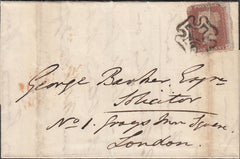 George Barker Esqre
Solicitor
No 1. Grays Inn Square
London.